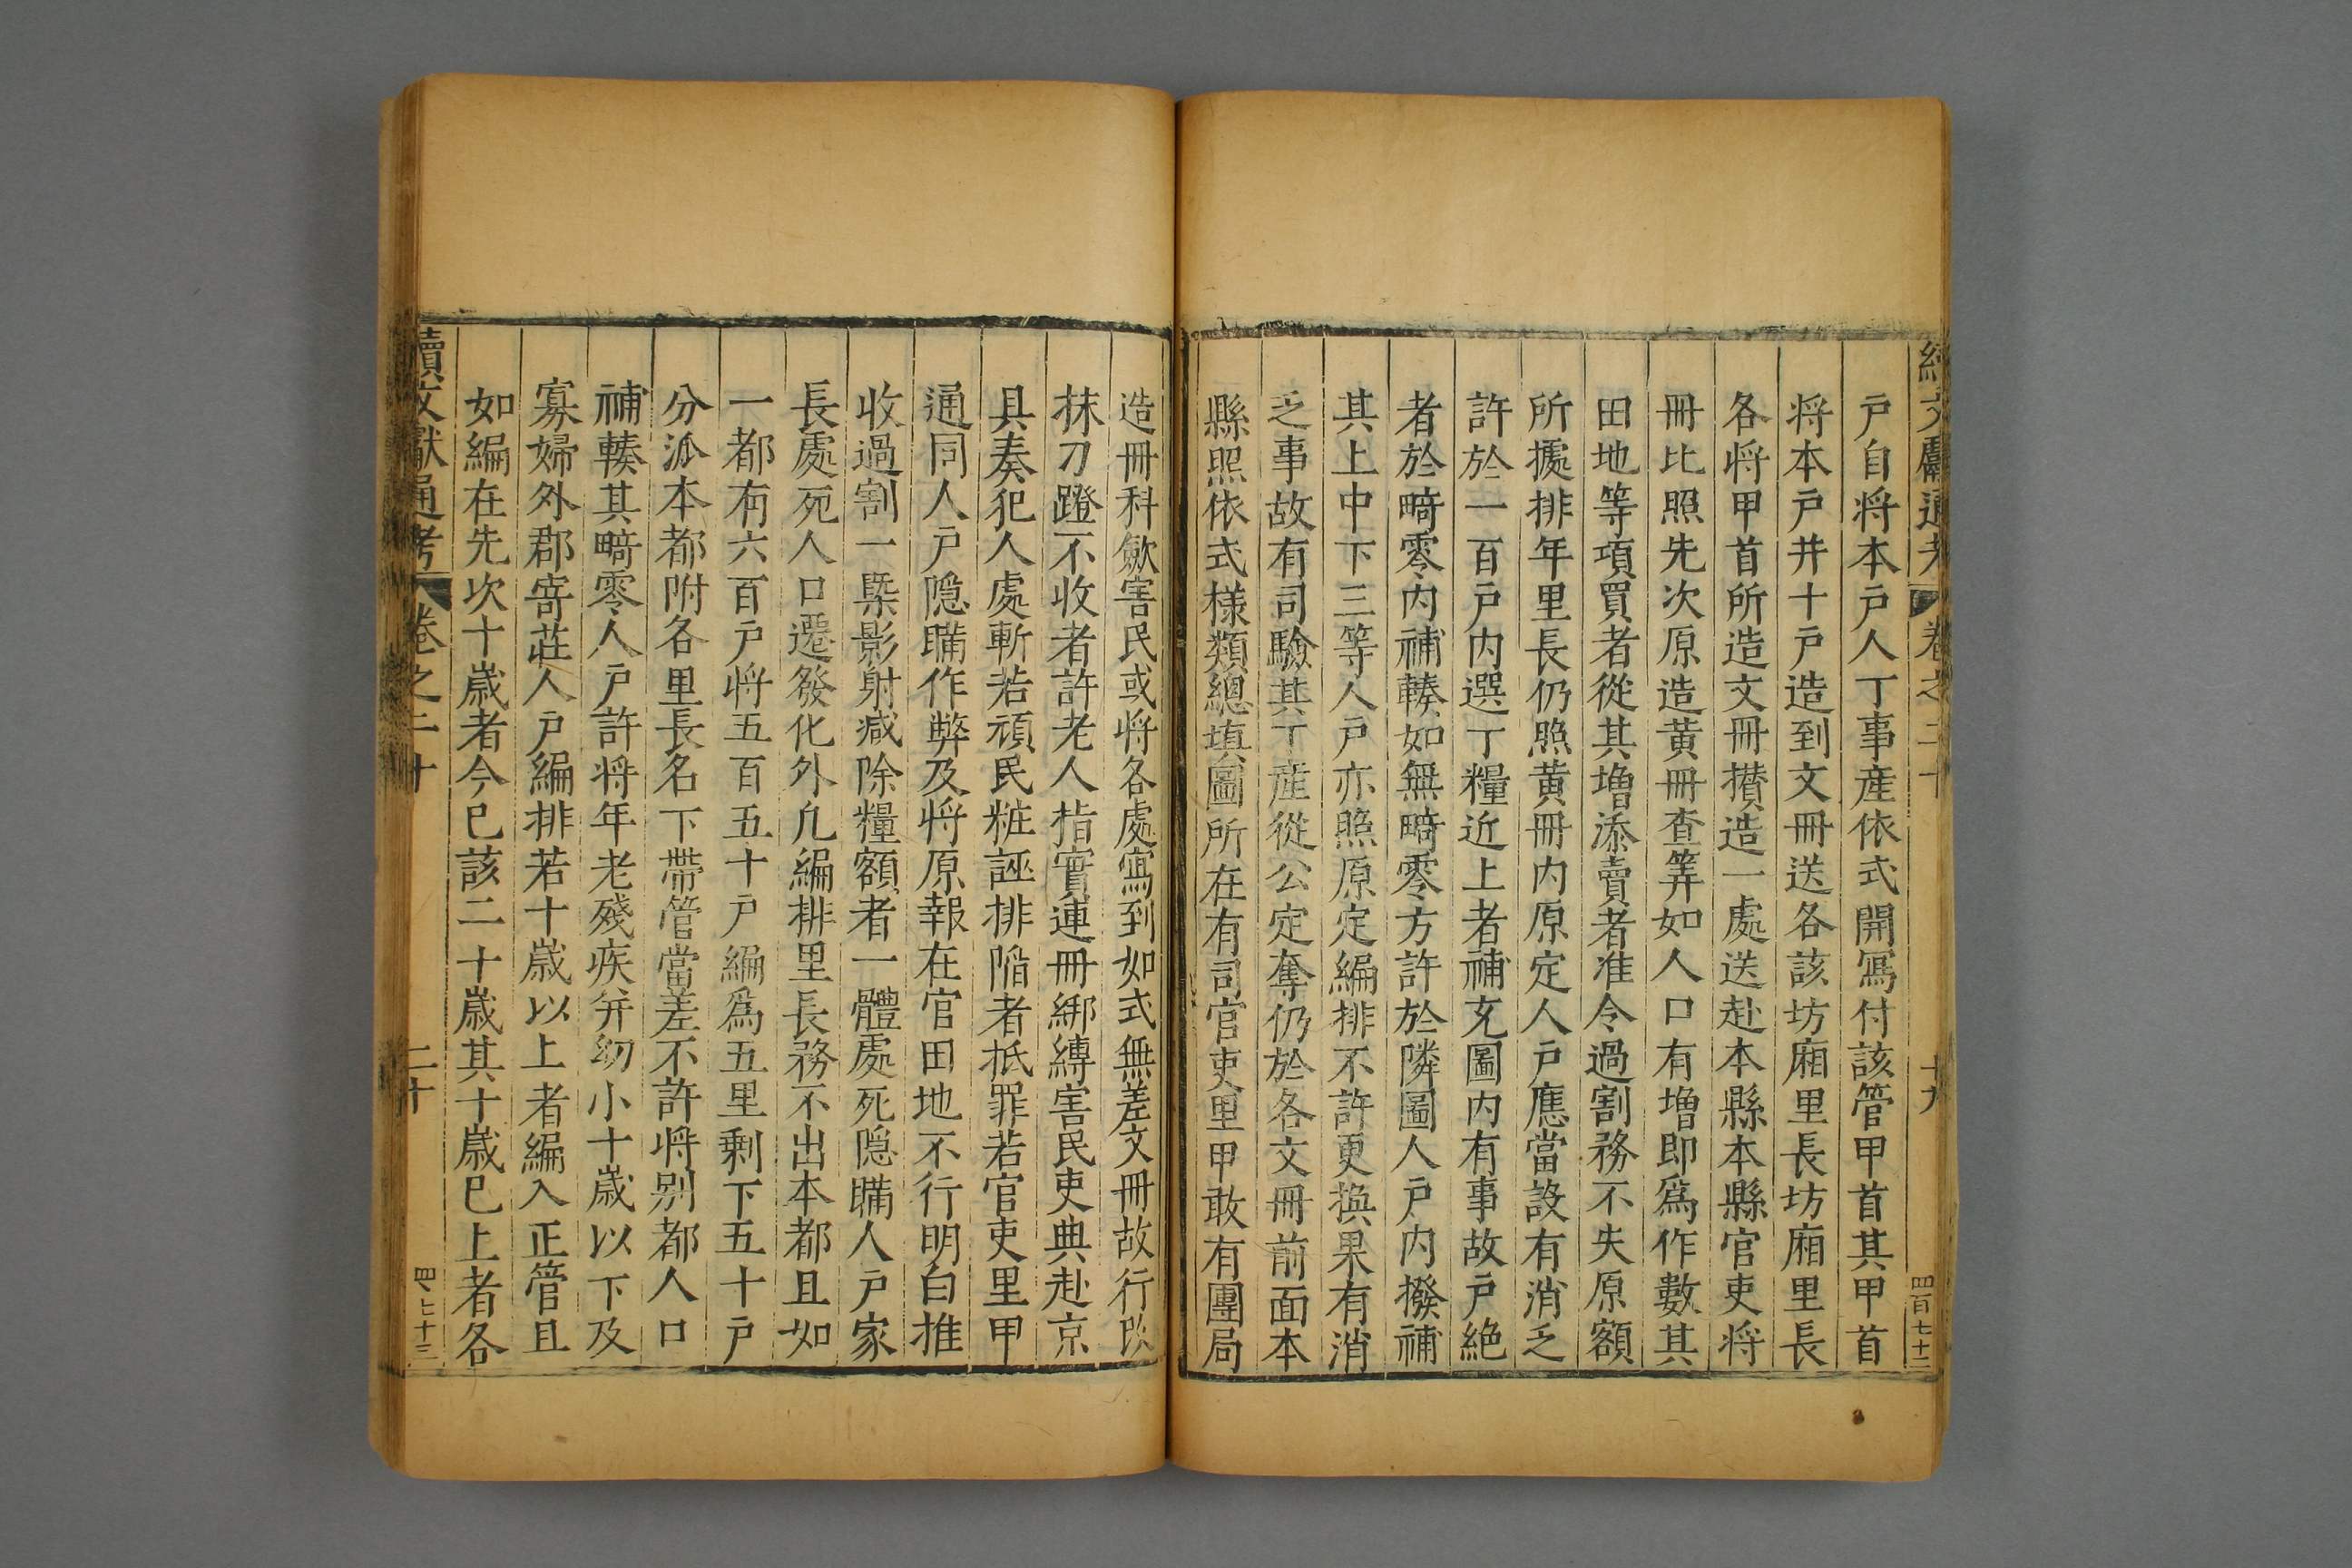 續文獻通考 卷之二十 十九 四百七十二
戶自將本戶人丁事産依式開寫付該管甲首其甲首
将本戶并十戶造到文冊送各該坊廂里長坊廂里長
各将甲首所造文冊攅造一處送赴本縣本縣官吏将
冊比照先次原造黄冊查筭如人口有增即爲作數其
田地等項買者從其增添賣者准令過割務不失原額
所據排年里長仍照黄冊内原定人戶應當設有消乏
許於一百戶内選丁糧近上者補充圖内有事故戶絶
者於畸零内補輳如無畸零方許於隣圖人戶内撥補
其上中下三等人戶亦照原定編排不許更換果有消
乏事故有司驗其丁産從公定奪仍於各文冊前面本
縣照依式樣類總填圖所在有司官吏里甲敢有團局
造冊科歛害民或将各處寫到如式無差文冊故行改
抹刁蹬不收者許老人指實連冊綁縛害民吏典赴京
具奏犯人處斬若頑民粧誣排陷者抵罪若官吏里甲
通同人戶隱瞞作弊及將原報在官田地不行明白推
收過割一槩影射减除糧額者一體處死隱瞞人戶家
長處死人口遷發化外凢編排里長務不出本都且如
一都有六百戶將五百五十戶編爲五里剩下五十戶
分派本都附各里長名下帶管當差不許将别都人口
補輳其畸零人戶許将年老殘疾并幼小十歲以下及
寡婦外郡寄莊人戶編排若十歲以上者編入正管且
如編在先次十歲者今已該二十歲其十歲已上者各
續文獻通考 卷之二十 二十 四七十三